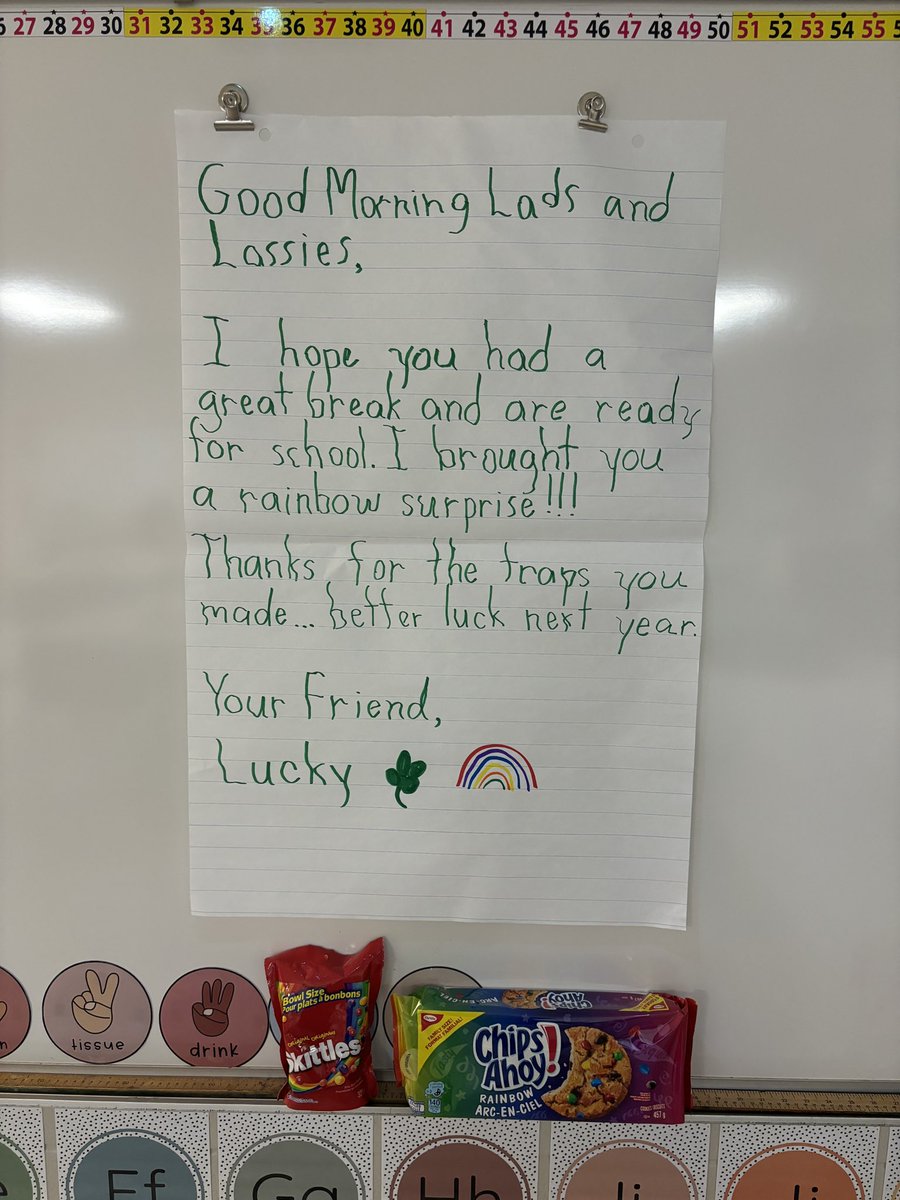 27 28 29 30 31 32 33 34 35 36 37 38 39 40 41 42 43 44 45 46 47 48 49 50 51 52 53 54 55
Good Morning Lads and
Lassies,
I hope you had a
great break and are ready
for school. I brought you
a rainbow surprise!!!
Thanks for the traps you
made... better luck next year.
Your Friend,
Lucky
tissue
drink
Bowl Size
Pour plats à bonbons
Skittles
FAMILY SIZE!
FORMAT FAMILIAL!
Chips
Ahoy!
RAINBOW
ARC-EN-CIEL
457 g
Ff
Gg
Hh
Ii
Jj